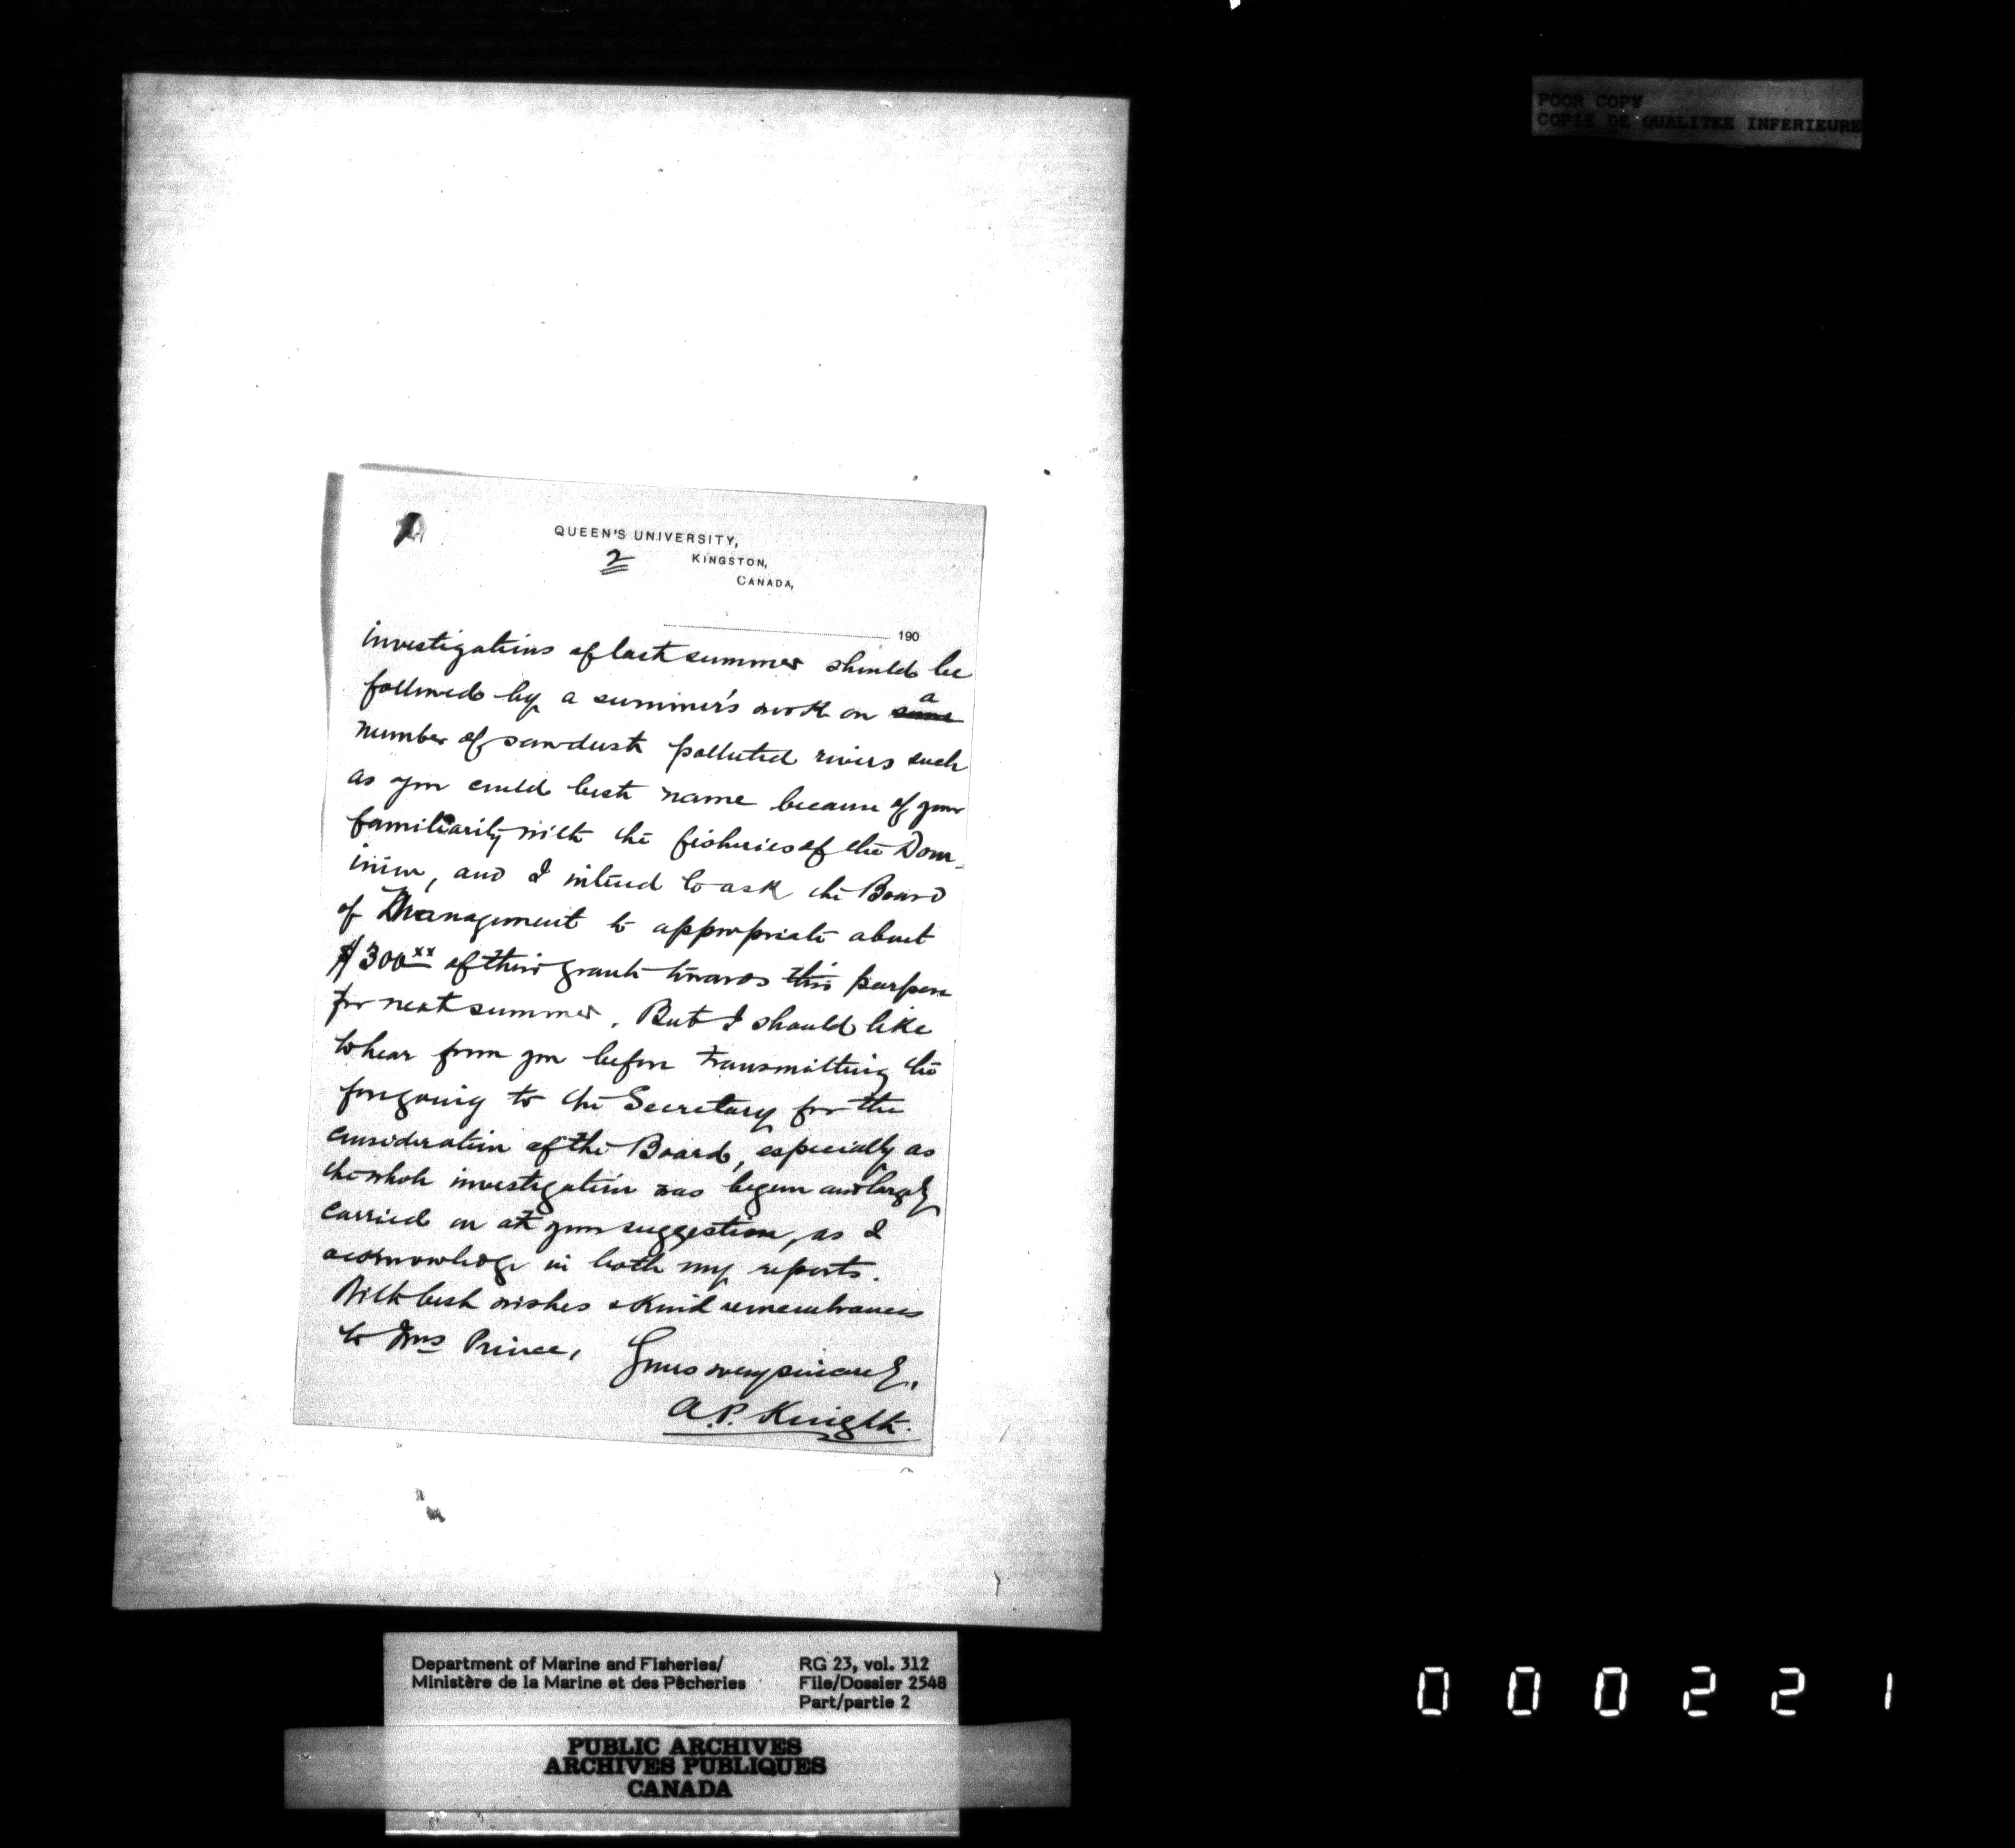 POOR COPY
COPIE DE QUALITEE INFERIEURE
QUEEN'S UNIVERSITY,
2
KINGSTON,
CANADA,
190
investigations of last summer should be
followed by a summer's work on some a
number of sawdust polluted rivers such
as you could best name because of your
familiarity with the fisheries of the Dom-
inion, and I intend to ask the Board
of Management to appropriate about
$300xx of their grant towards this purpose
for next summer. But I should like
to hear from you before transmitting the
foregoing to the Secretary for the
consideration of the Board, especially as
the whole investigation was begun and largely
carried on at your suggestion, as I
acknowledge in both my reports.
With best wishes & kind remembrances
to Mrs Prince,
Yours very sincerely,
A.P. Knight.
Department of Marine and Fisheries/
Ministère de la Marine et des Pêcheries
RG 23, vol. 312
File/Dossier 2548
Part/partie 2
PUBLIC ARCHIVES
ARCHIVES PUBLIQUES
CANADA
000221